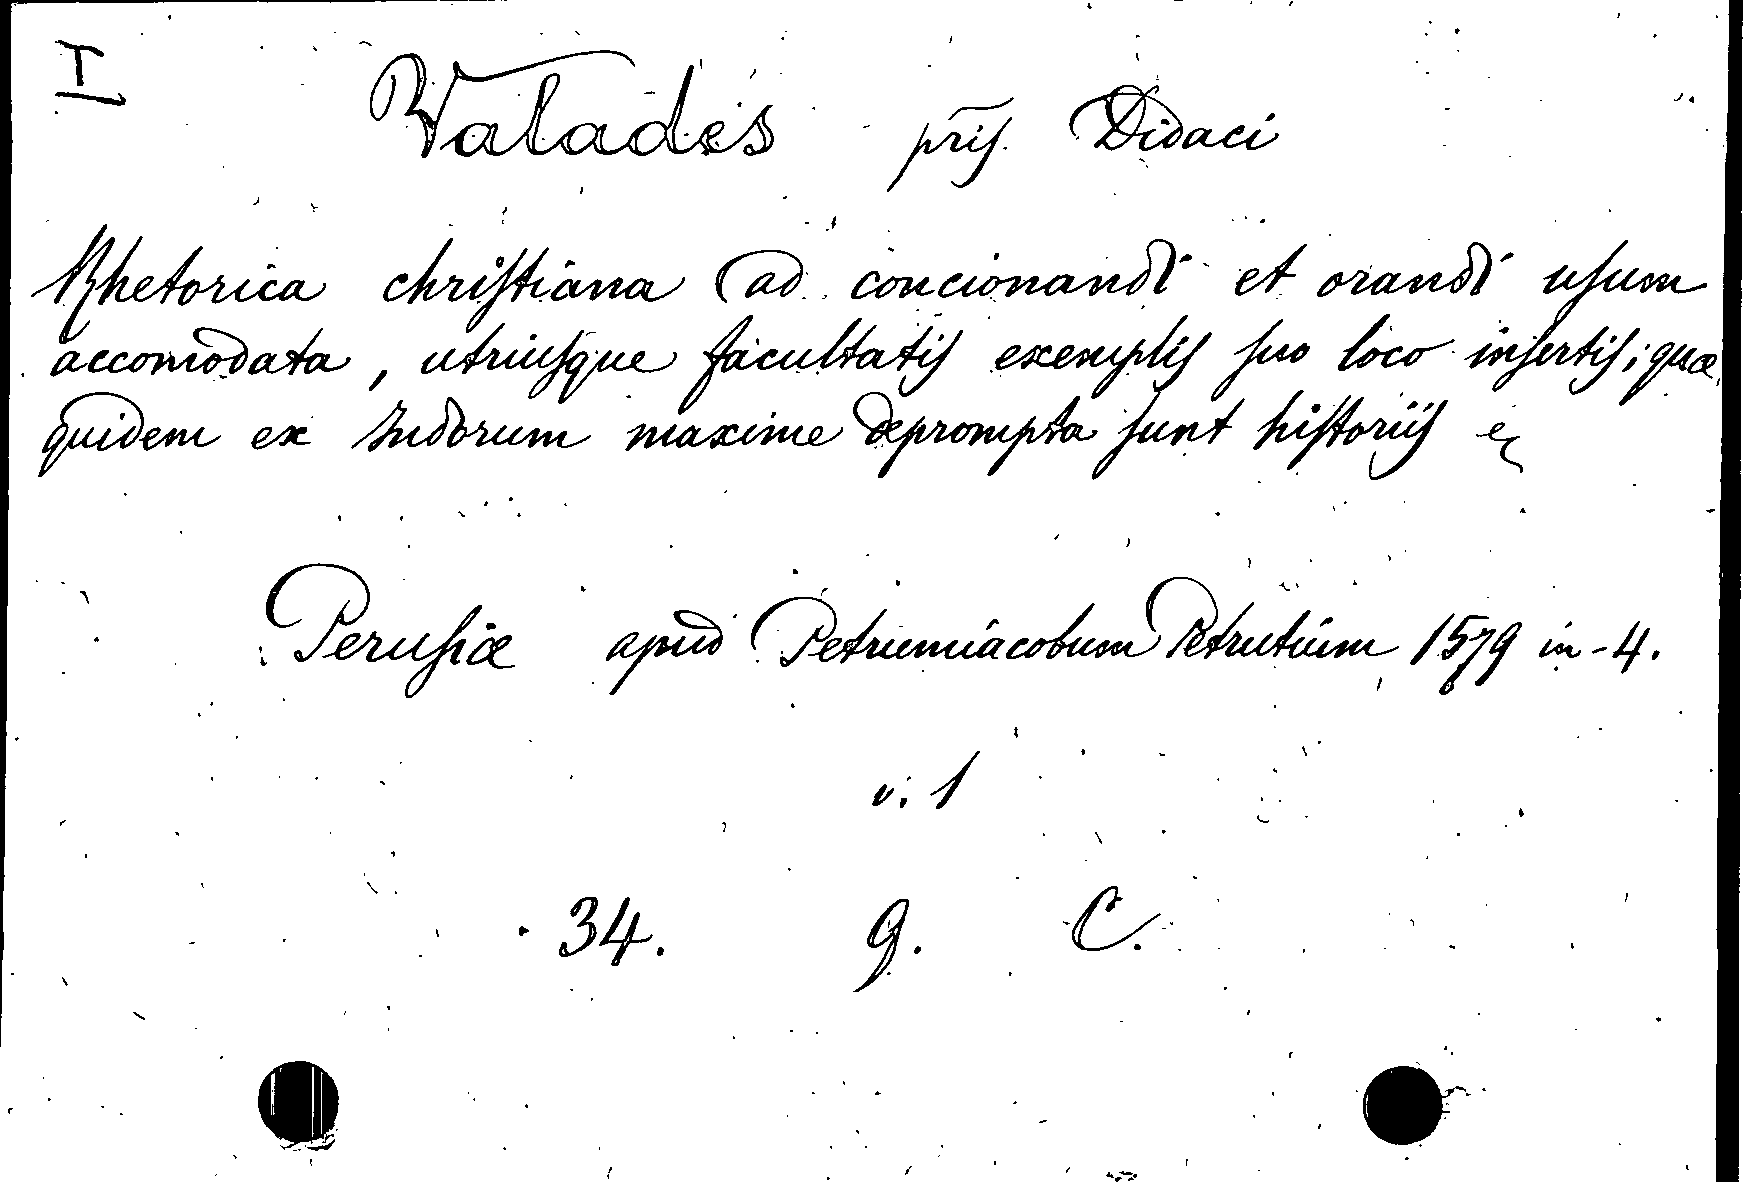 I
Valades pris. Didaci
Rhetorica christiana ad concionandi et orandi usum
accomodata, utriusque facultatis exemplis suo loco insertis; quæ
quidem ex Indorum maxime deprompta sunt historiis
Perusiæ apud Petrumiacobum Petrutium 1579 in-4.
v. 1
34. 9. C.